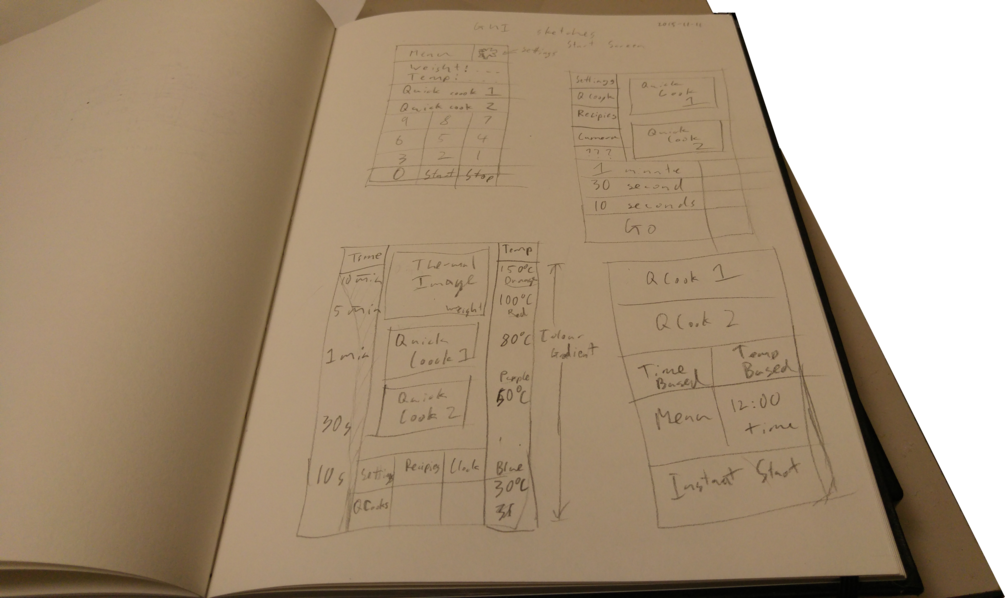 GUI sketches
Start Screen
Menu
settings
Weight: ...
Temp: ...
Quick cook 1
Quick cook 2
9 8 7
6 5 4
3 2 1
0 Start Stop
Settings
Recipies
Camera
???
Quick
Cook
1
Quick
Cook
2
1 minute
30 second
10 seconds
GO
Time
10 min
5 min
1 min
30s
10s
Thermal
Image
weight
Quick
Coook 1
Quick
Cook 2
Settings
Recipies
Clock
QCooks
Temp
150°C
Orange
100°C
Red
80°C
Purple
50°C
Blue
30°C
Colour
Gradient
QCook 1
QCook 2
Time
Based
Temp
Based
Menu
12:00
time
Instant Start